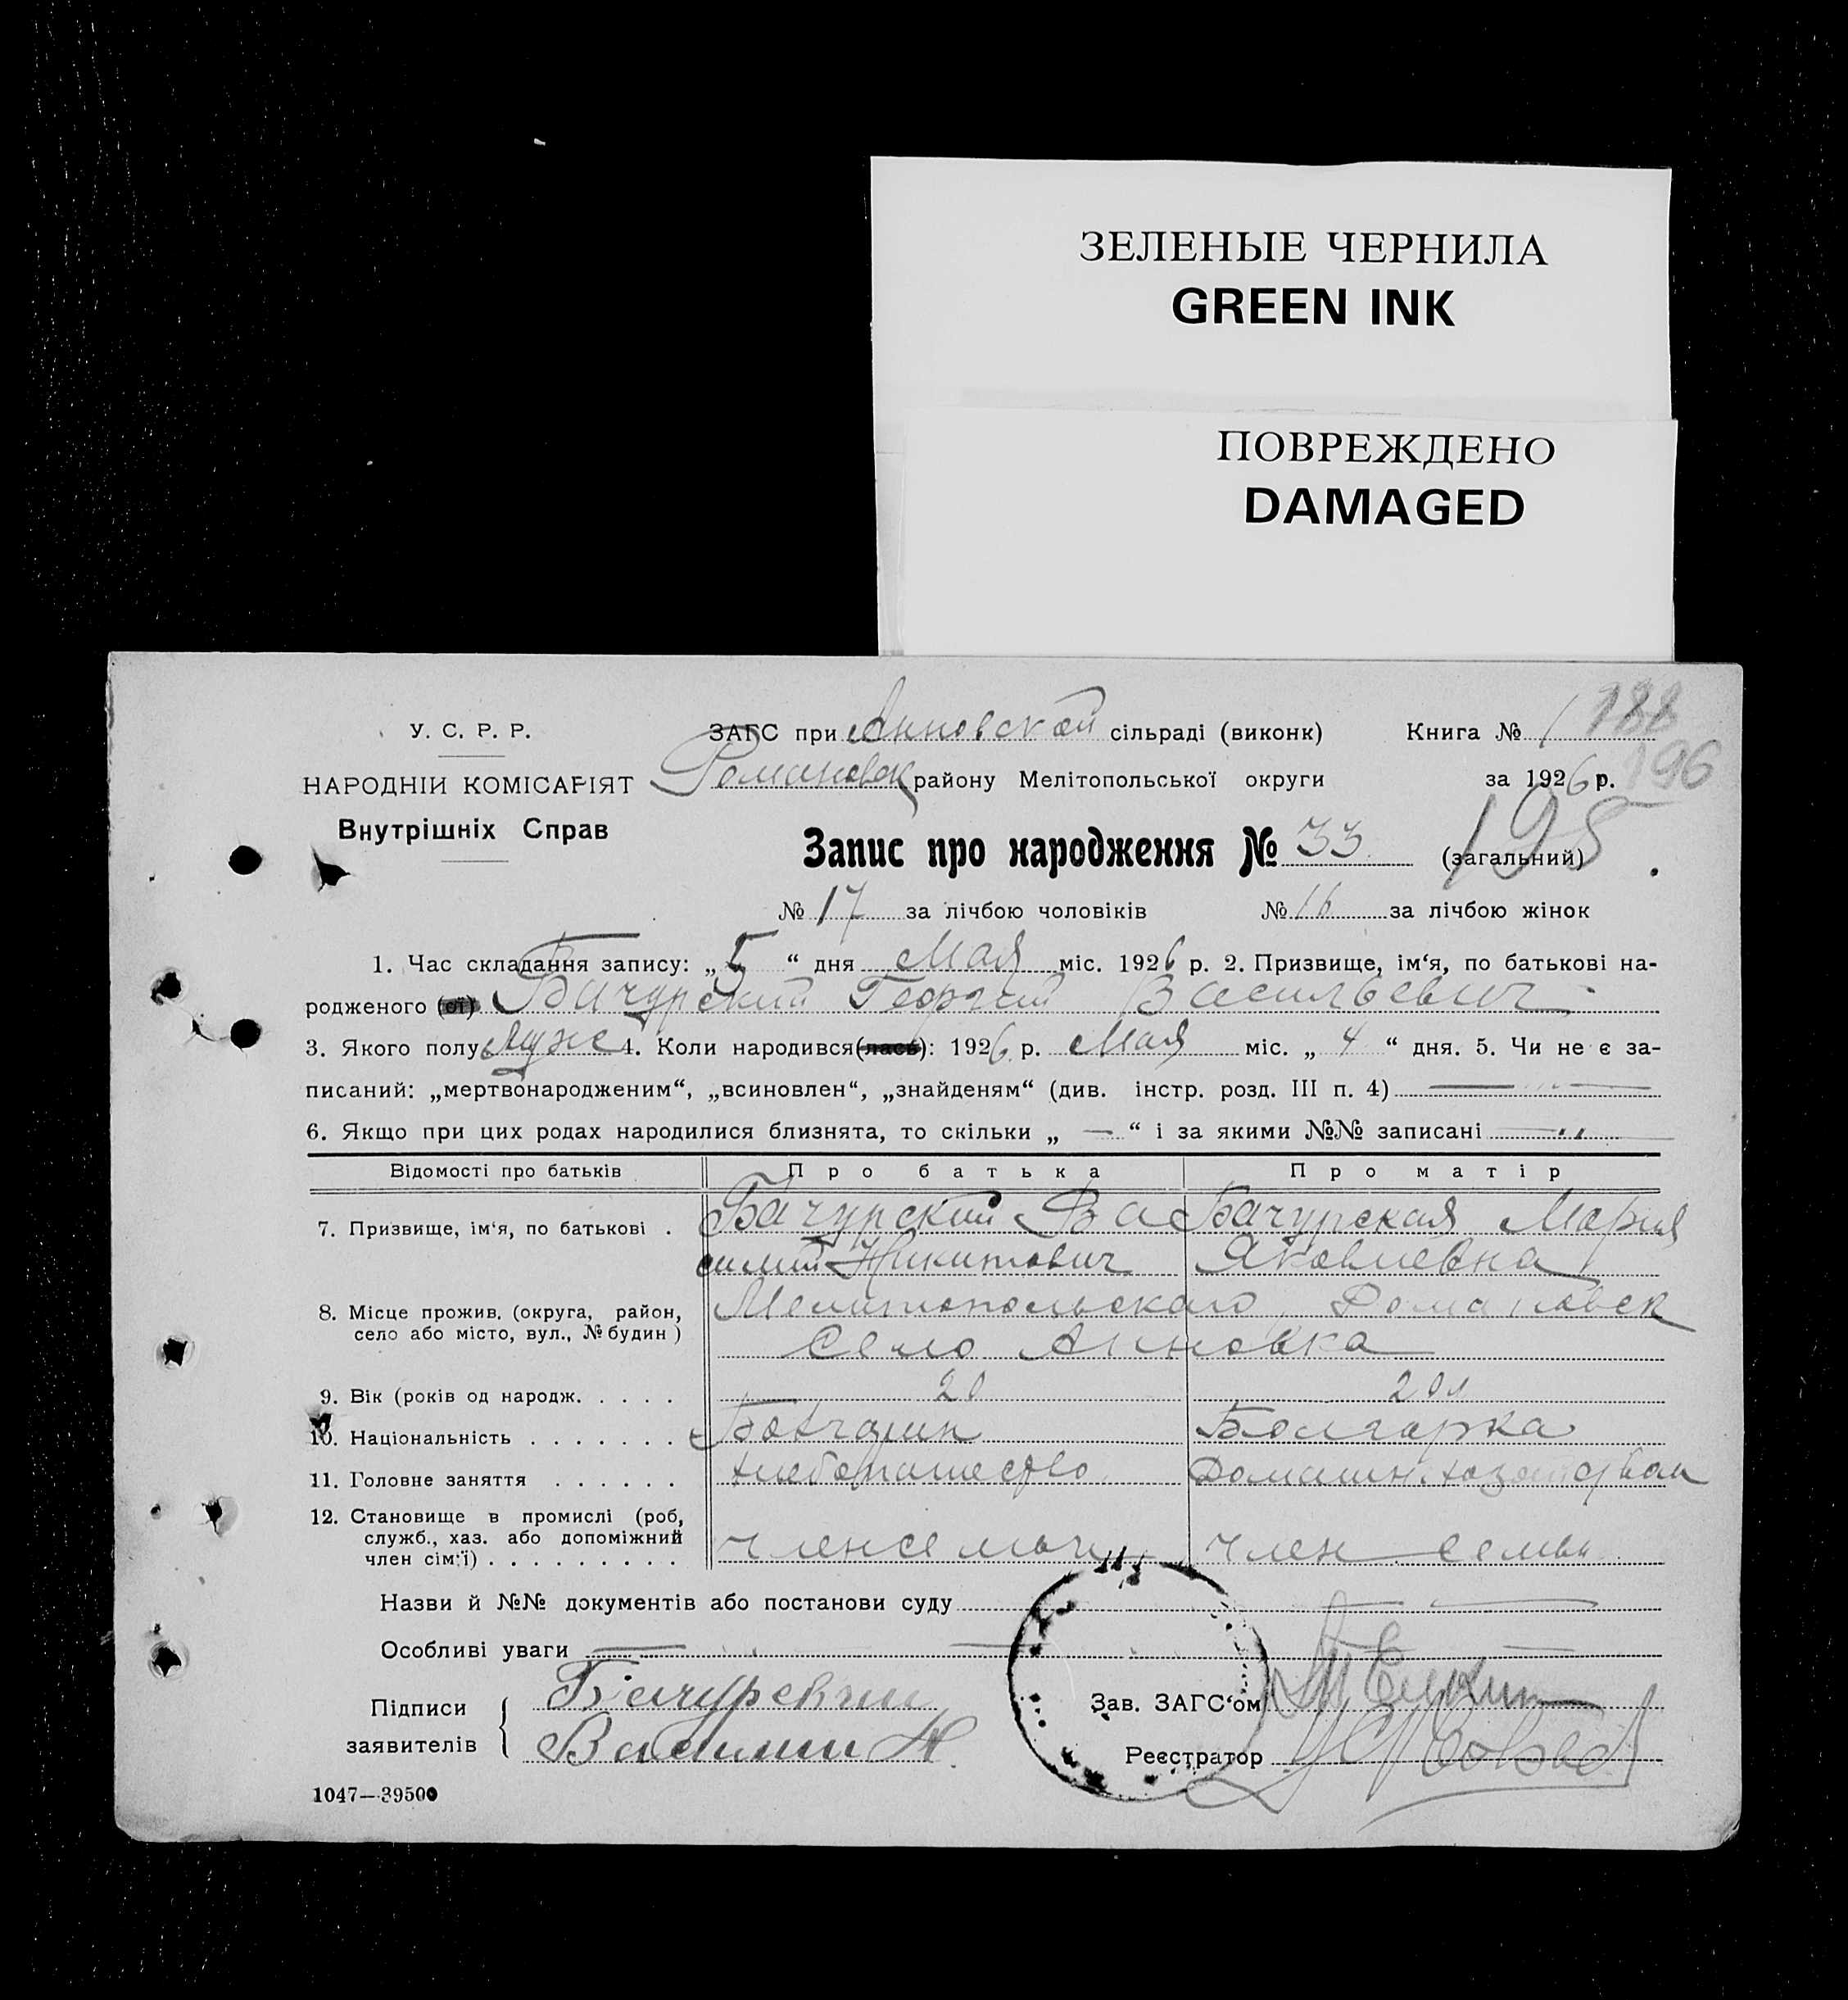 ЗЕЛЕНЫЕ ЧЕРНИЛА
GREEN INK
ПОВРЕЖДЕНО
DAMAGED
У. С. Р. Р.
НАРОДНІЙ КОМІСАРІЯТ
Внутрішніх Справ
ЗАГС при Анновской сільраді (виконк) Книга № 1 188
Романовск району Мелітопольської округи за 1926 р. 196
Запис про народження № 33 (загальний) 195
№ 17 за лічбою чоловіків № 16 за лічбою жінок
1. Час складання запису: „5“ дня Мая міс. 1926 р. 2. Призвище, ім‘я, по батькові на-
родженого (ої) Бачурский Георгий Васильевич
3. Якого полу муж 4. Коли народився(лась): 1926 р. Мая міс. „4“ дня. 5. Чи не є за-
писаний: „мертвонародженим“, „всиновлен“, „знайденям“ (див. інстр. розд. III п. 4)
6. Якщо при цих родах народилися близнята, то скільки „ — “ і за якими №№ записані
Відомості про батьків Про батька Про матір
7. Призвище, ім‘я, по батькові . Бачурский Ва Бачурская Мария
силий Никитович Яковлевна
8. Місце прожив. (округа, район, Мелитопольскаго Романовск
село або місто, вул., № будин) село Анновка
9. Вік (років од народж. . . . . 20 20л
10. Національність . . . . . . . Болгарин Болгарка
11. Головне заняття . . . . . . хлебопашество Домашн. хозяйством
12. Становище в промислі (роб,
служб., хаз. або допоміжний
член сім‘ї) . . . . . . . . . член семьи член семьи
Назви й №№ документів або постанови суду
Особливі уваги
Підписи
заявителів
Бачурский
Василий Н
Зав. ЗАГС‘ом
Реєстратор
1047—39500